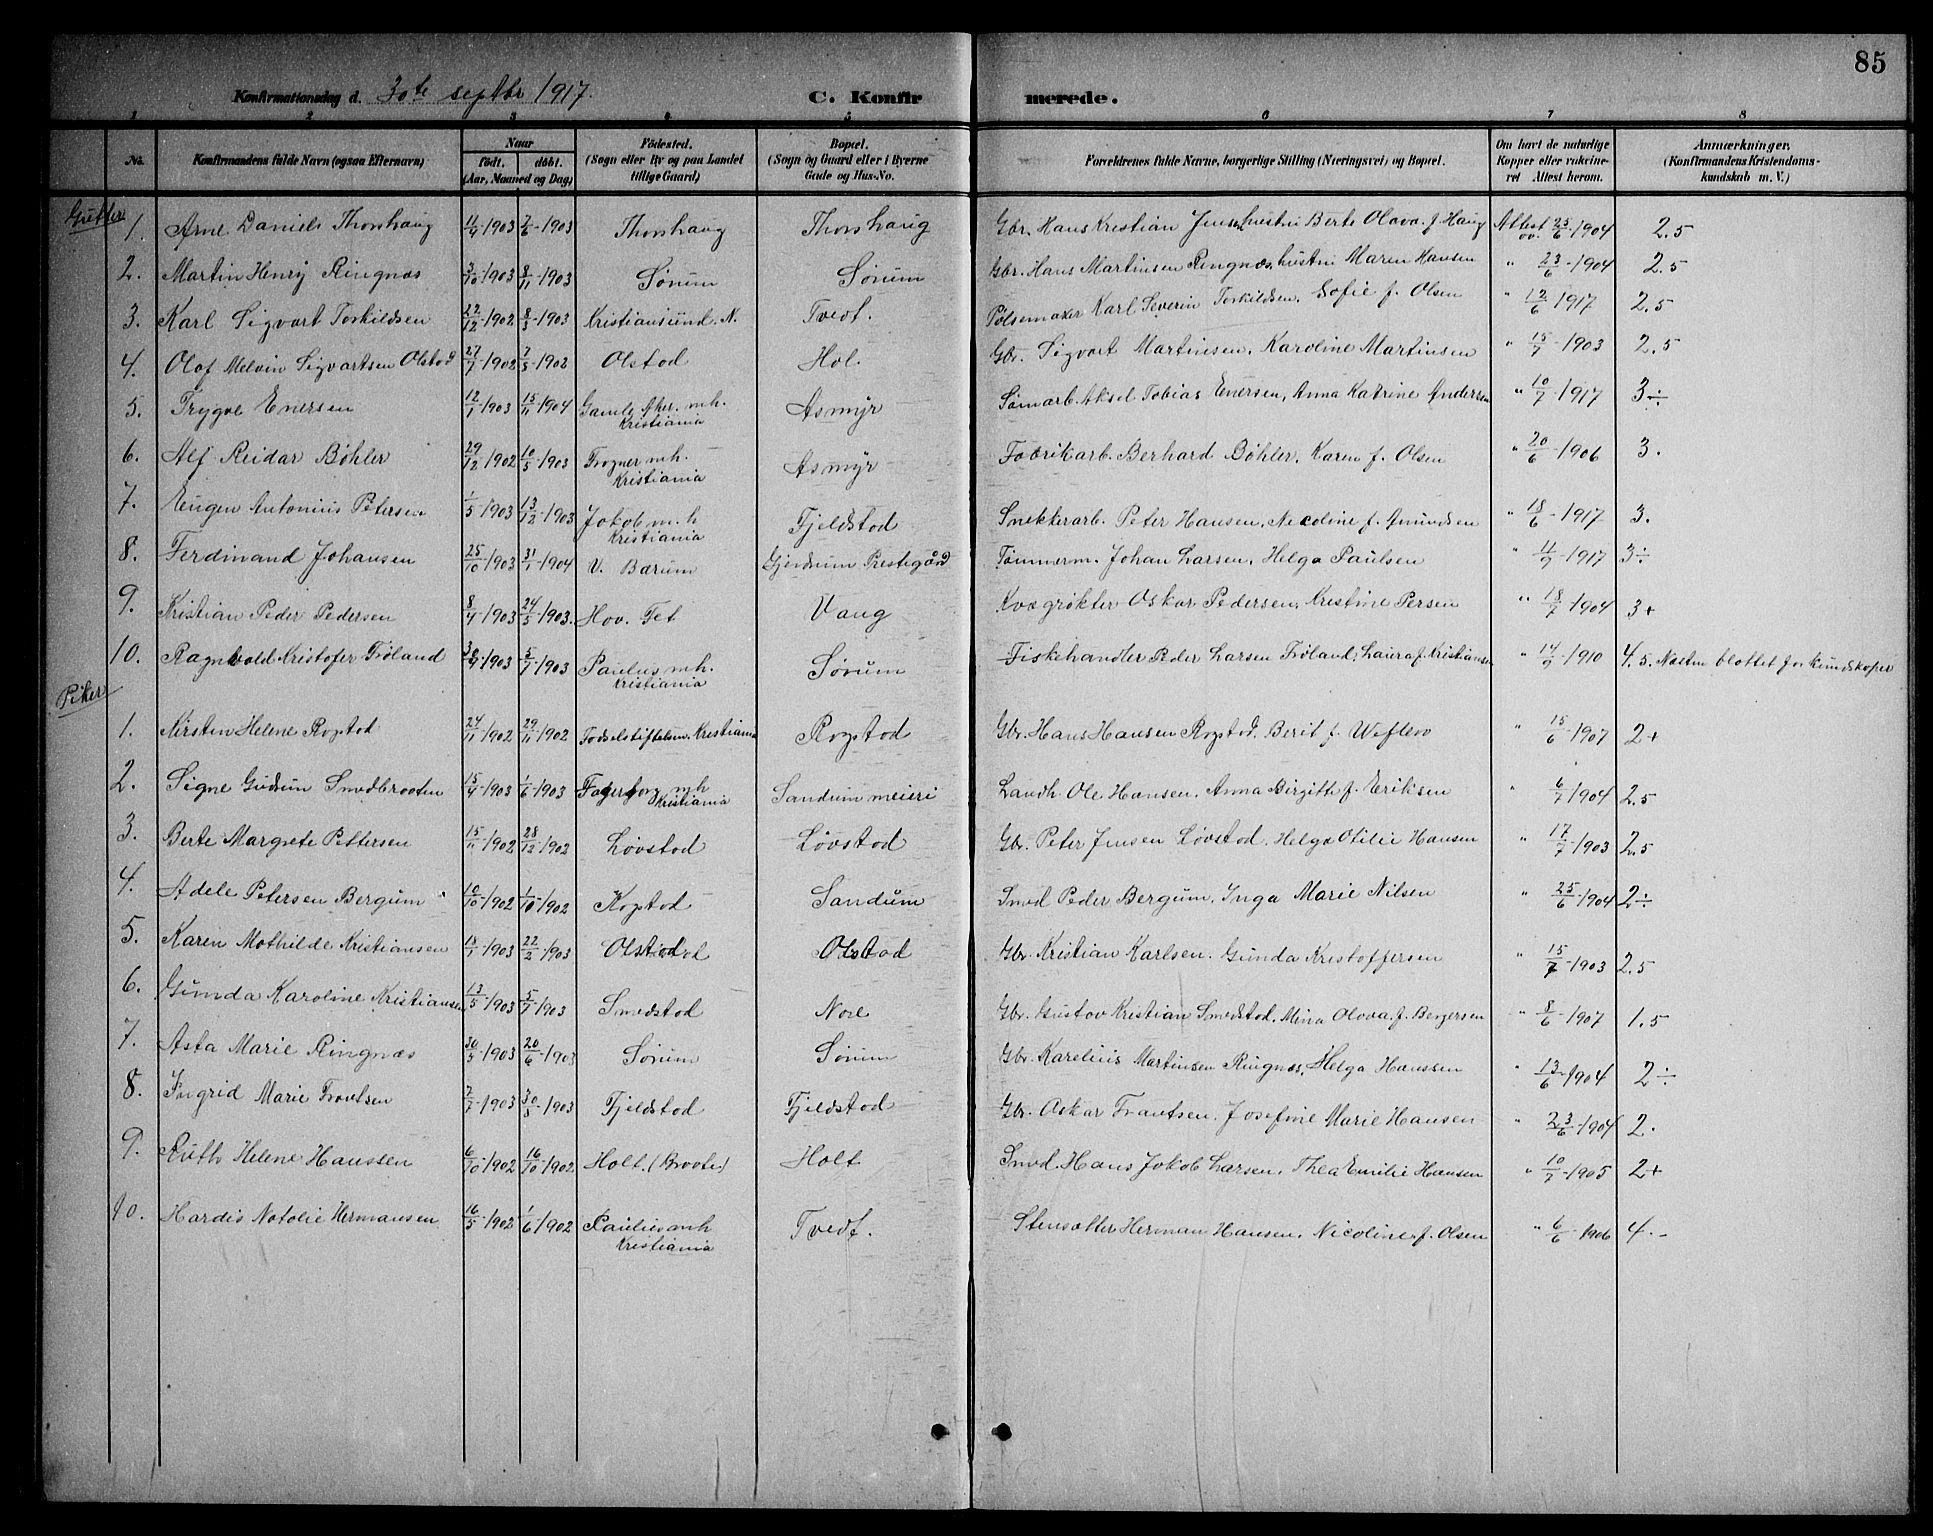 85
Konfirmationsdag d. 30te septbr 1917.
C. Konfirmerede.
1 2 3 4 5 6 7 8
No. Konfirmandens fulde Navn (ogsaa Efternavn) Naar født. døbt. (Aar, Maaned og Dag) Fødested. (Sogn eller By og paa Landet tillige Gaard) Bopæl. (Sogn og Gaard eller i Byerne Gade og Hus-No. Forældrenes fulde Navne, borgerlige Stilling (Næringsvei) og Bopæl. Om havt de naturlige Kopper eller vakcineret Attest herom. Anmærkninger. (Konfirmandens Kristendomskundskab m. V.)
Gutter
1. Arne Daniels Thorshaug 11/9-1903 7/6-1903 Thorshaug Thorshaug Gbr. Hans Kristian Jensen, hustru Berte Olava f. Haug Attest ov. 25/6-1904 2.5
2. Martin Henry Ringnæs 3/10-1903 8/11-1903 Sørum Sørum Gbr. Hans Martinsen Ringnæs, hustru Maren Hansen " 23/6-1904 2.5
3. Karl Sigvart Torkildsen 22/12-1902 8/3-1903 Kristiansund. N. Tvedt. Pølsemaker Karl Severin Torkildsen, Sofie f. Olsen " 12/6 1917 2.5
4. Olaf Melvin Sigvartsen Olstad 27/7-1902 7/5-1902 Olstad Hol. Gbr. Sigvart Martinsen, Karoline Martinsen " 15/7-1903 2.5
5. Trygve Enersen 12/1-1903 15/11-1904 Gamle Aker. mh. Kristiania Asmyr Sømarb. Aksel Tobias Enersen, Anna Katrine Andersen " 10/7-1917 3÷
6. Alf Reidar Bøhler 29/12-1902 10/5-1903 Frogner mh. Kristiania Asmyr Fabrikarb. Berhard Bøhler, Karen f. Olsen " 20/6-1906 3.
7. Eugen Antonius Petersen 1/5-1903 13/12-1903 Jakob m.h Kristiania Fjeldstad Snekkerarb. Peter Hansen, Nicoline f. Amundsen " 18/6-1917 3.
8. Ferdinand Johansen 25/10-1903 31/1-1904 V. Bærum Gjerdrum Prestegård Tømmerm. Johan Larsen, Helga Paulsen " 11/9-1917 3÷
9. Kristian Peder Pedersen 8/4-1903 24/5-1903. Hov. Fet Vang Kvægrøkter Oskar Pedersen, Kristine Persen " 18/7-1904 3+
10. Ragnvald Kristofer Frøland 30/4-1903 5/7-1903 Paulus mh. Kristiania Sørum Fiskehandler Peder Larsen Frøland, Laura f. Kristiansen " 14/9-1910 4.5. Næsten blottet for kundskaper
Piker
1. Kirsten Helene Rogstad 24/11-1902 29/11-1902 Fødselstiftelsen. Kristiania Rogstad Gbr. Hans Hansen Rogstad, Berit f. " 15/6-1907 2+
2. Signe Gudrun Smedbraaten 15/4-1903 1/6-1903 Fagerborg mh Kristiania Sandum meieri Landh. Ole Hansen, Anna Birgitte f. Eriksen " 6/7-1904 2.5
3. Berte Margrete Pettersen 15/11-1902 28/12-1902 Løvstad Løvstad Gbr. Peter Jensen Løvstad, Helga Otilie Hansen " 17/7-1903 2.5
4. Adele Petersen Bergum 10/10-1902 1/10-1902 Rogstad Sandum Smed Peder Bergum, Inga Marie Nilsen " 25/6-1904 2÷
5. Karen Mathilde Kristiansen 18/1-1903 22/2-1903 Olstad Olstad Gbr. Kristian Karlsen, Gunda Kristoffersen " 15/7-1903 2.5
6. Gunda Karoline Kristiansen 13/5-1903 5/7-1903 Smedstad Nore Gbr. Gustav Kristian Smedstad, Mina Olava f. Bergersen " 8/6-1907 1.5
7. Asta Marie Ringnæs 30/5-1903 20/6-1903 Sørum Sørum Gbr. Karelius Martinsen Ringnæs, Helga Hanssen " 13/6-1904 2÷
8. Ingrid Marie Frantsen 2/7-1903 30/8-1903 Fjeldstad Fjeldstad Gbr. Oskar Frantsen, Josefine Marie Hansen " 23/6-1904 2.
9. Ruth Helene Hanssen 6/10-1902 16/10-1902 Holt. (Braate) Holt Smed Hans Jakob Larsen, Thea Emilie Hansen " 10/7-1905 2+
10. Hardis Natalie Hermansen 16/5-1902 1/6 1902 Paulus mh Kristiania Tvedt. Stensætter Herman Hansen, Nicoline f. Olsen " 6/6-1906 4.-